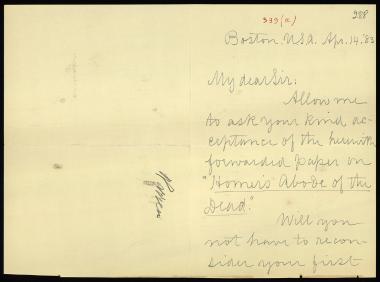 339(a)
288
Boston, U.S.A. Apr. 14. '83
My dear Sir:
Allow me
to ask your kind ac-
ceptance of the herewith
forwarded paper on
"Homer's Abode of the
Dead."
Will you
not have to recon-
sider your first
Warren